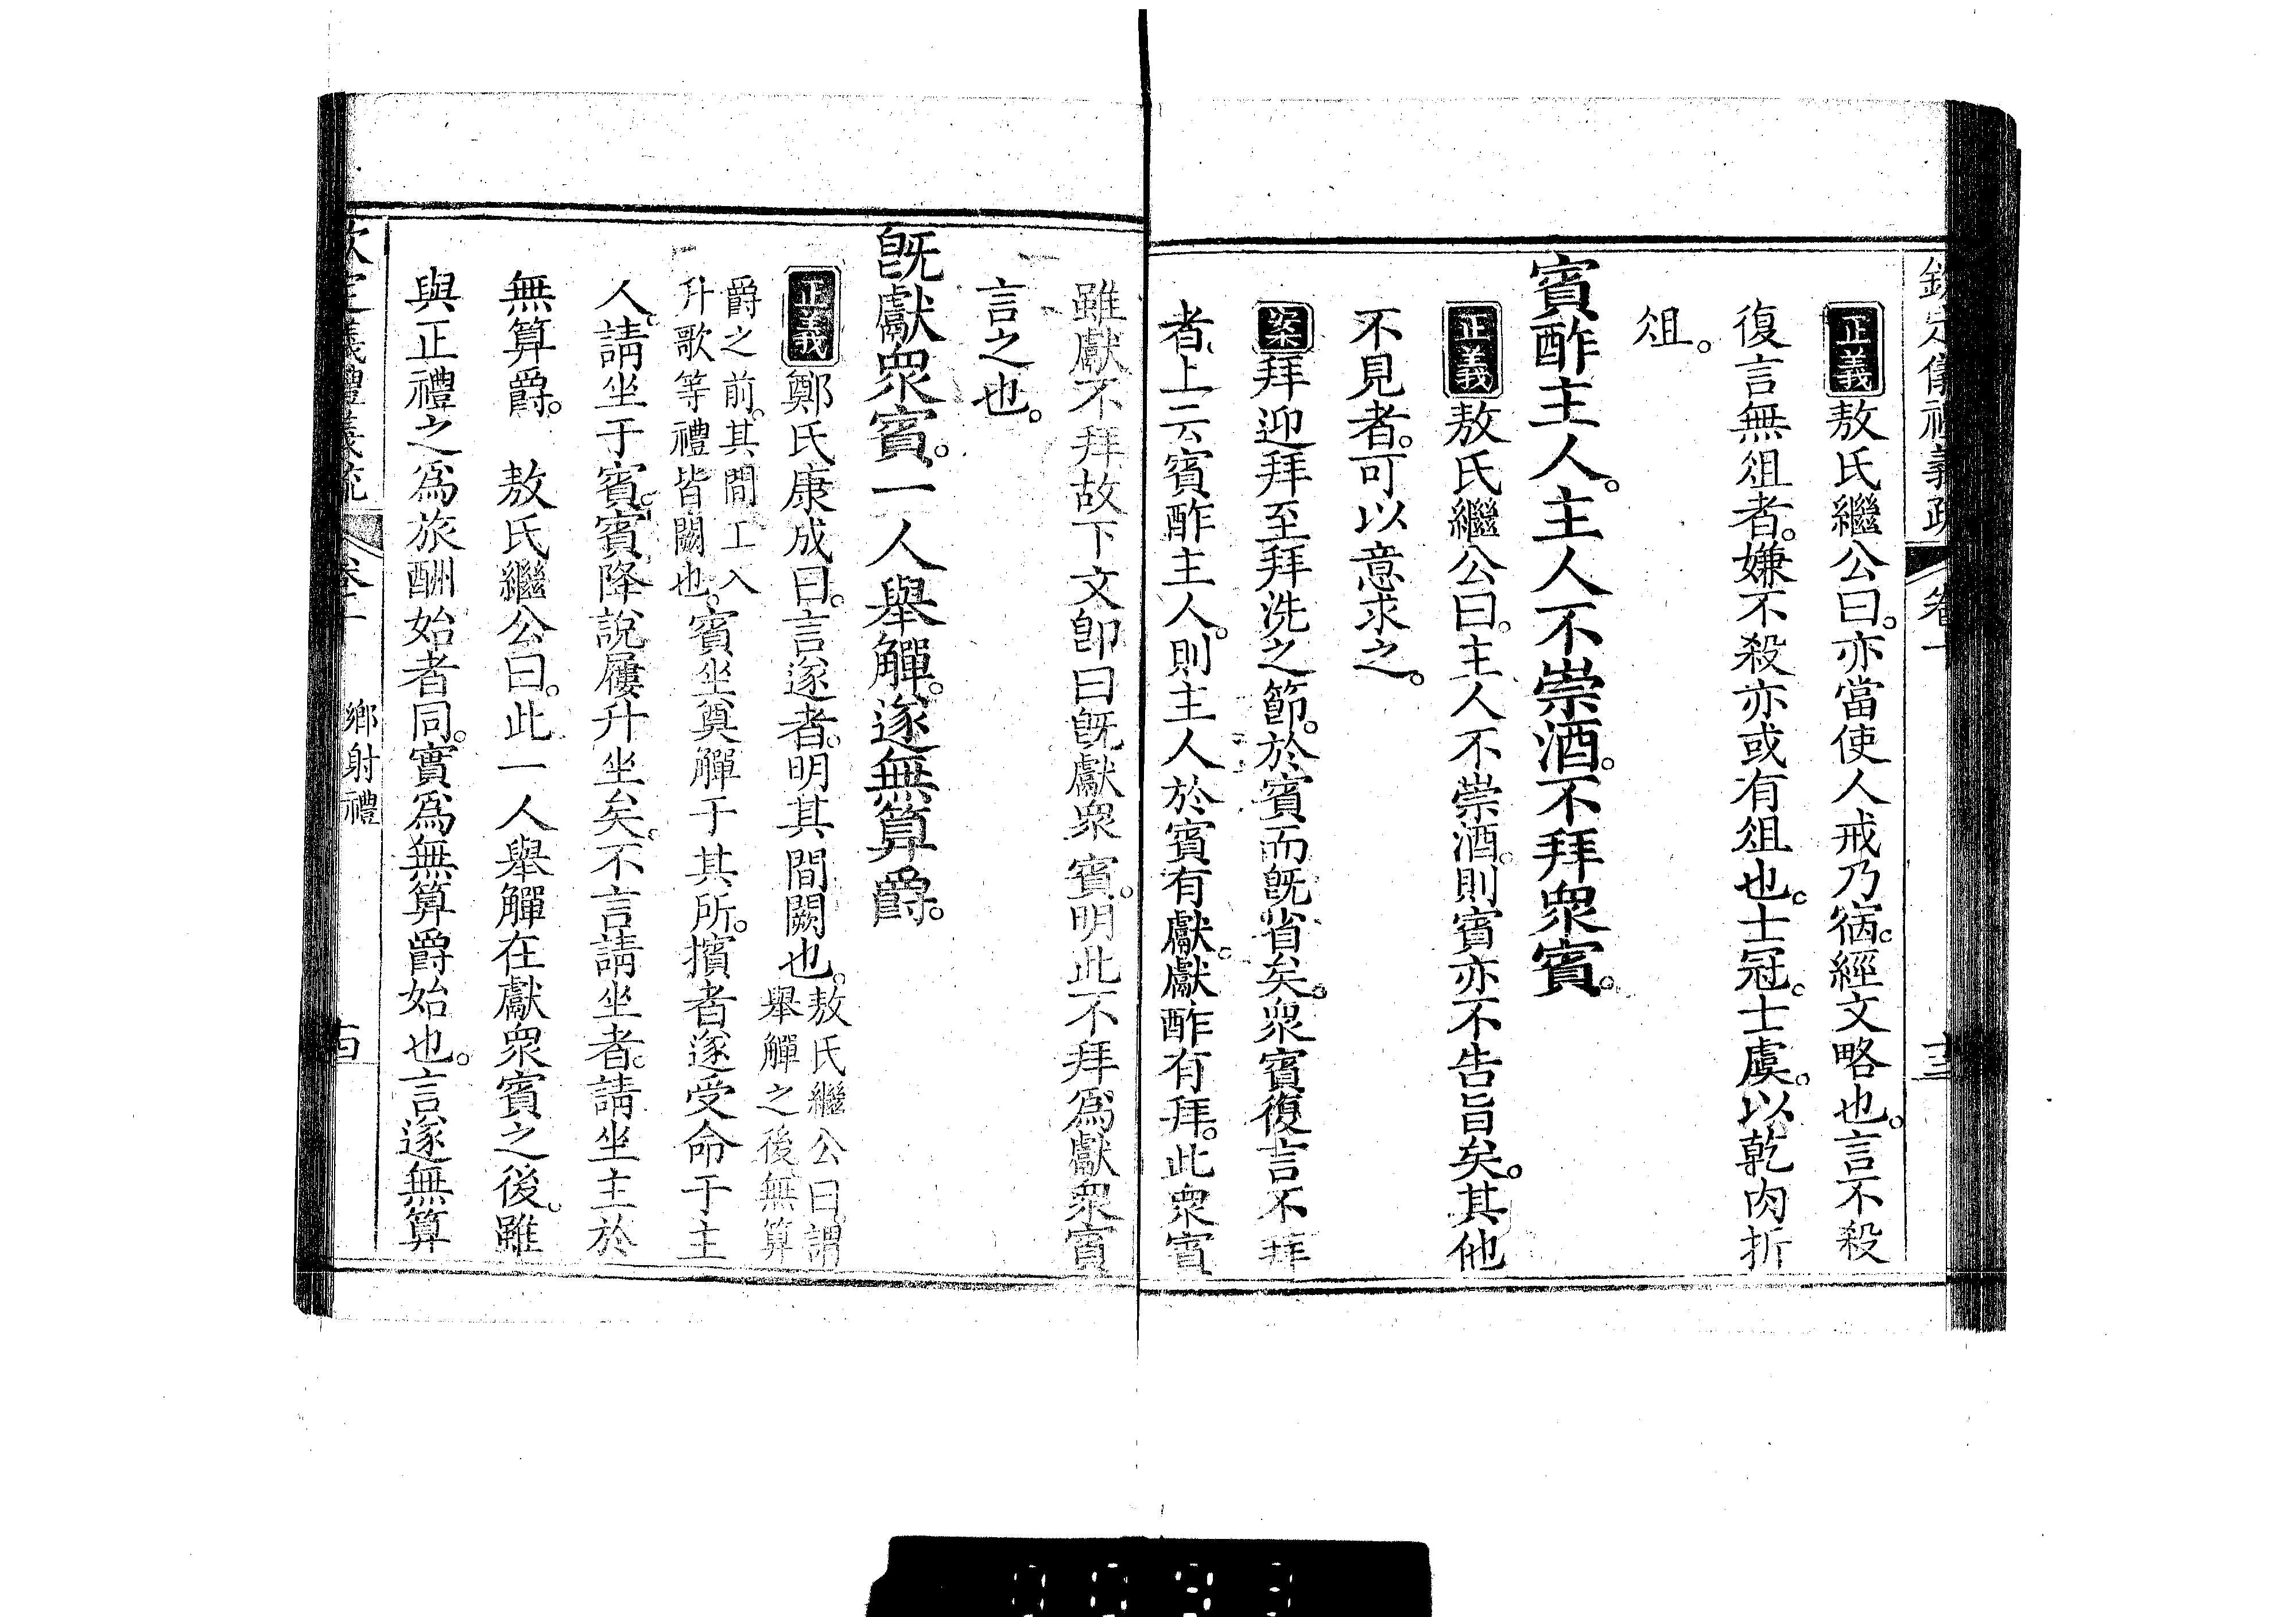 欽定儀禮義疏 卷十 十三
正義敖氏繼公曰。亦當使人戒乃徧。經文略也。言不殺
復言無俎者。嫌不殺亦或有俎也。士冠。士虞。以乾肉折
俎。
賓酢主人。主人不崇酒。不拜衆賓。
正義敖氏繼公曰。主人不崇酒。則賓亦不告旨矣。其他
不見者。可以意求之。
案拜迎拜至拜洗之節。於賓而旣省矣。衆賓復言不拜
者。上云賓酢主人。則主人於賓有獻。獻酢有拜。此衆賓
雖獻不拜故下文卽曰旣獻衆賓。明此不拜爲獻衆賓
言之也。
旣獻衆賓。一人舉觶。遂無算爵。
正義鄭氏康成曰。言遂者。明其間闕也。敖氏繼公曰。謂舉觶之後無算
爵之前。其間工入升歌等禮皆闕也。賓坐奠觶于其所。擯者遂受命于主
人。請坐于賓。賓降說屨升坐矣。不言請坐者。請坐主於
無算爵。　敖氏繼公曰。此一人舉觶在獻衆賓之後。雖
與正禮之爲旅酬始者同。實爲無算爵始也。言遂無算
欽定儀禮義疏 卷十 鄉射禮 十四